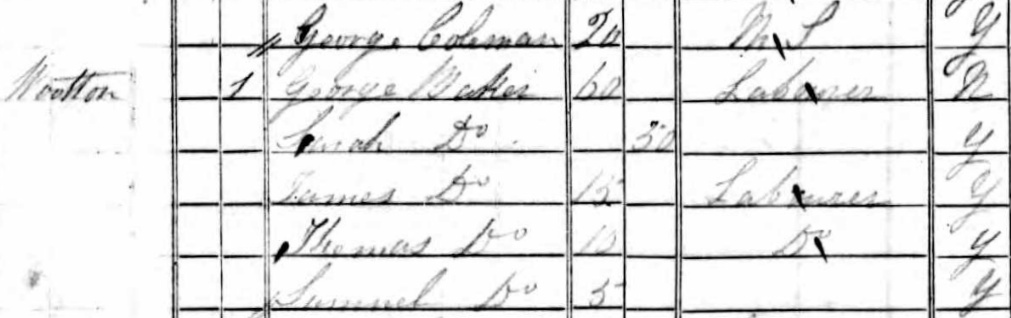 George Coleman 20 M.S Y
Wootton 1 George Baker 60 Labourer N
Sarah Do 50 Y
James Do 15 Labourer Y
Thomas Do 10 Do Y
Samuel Do 5 Y